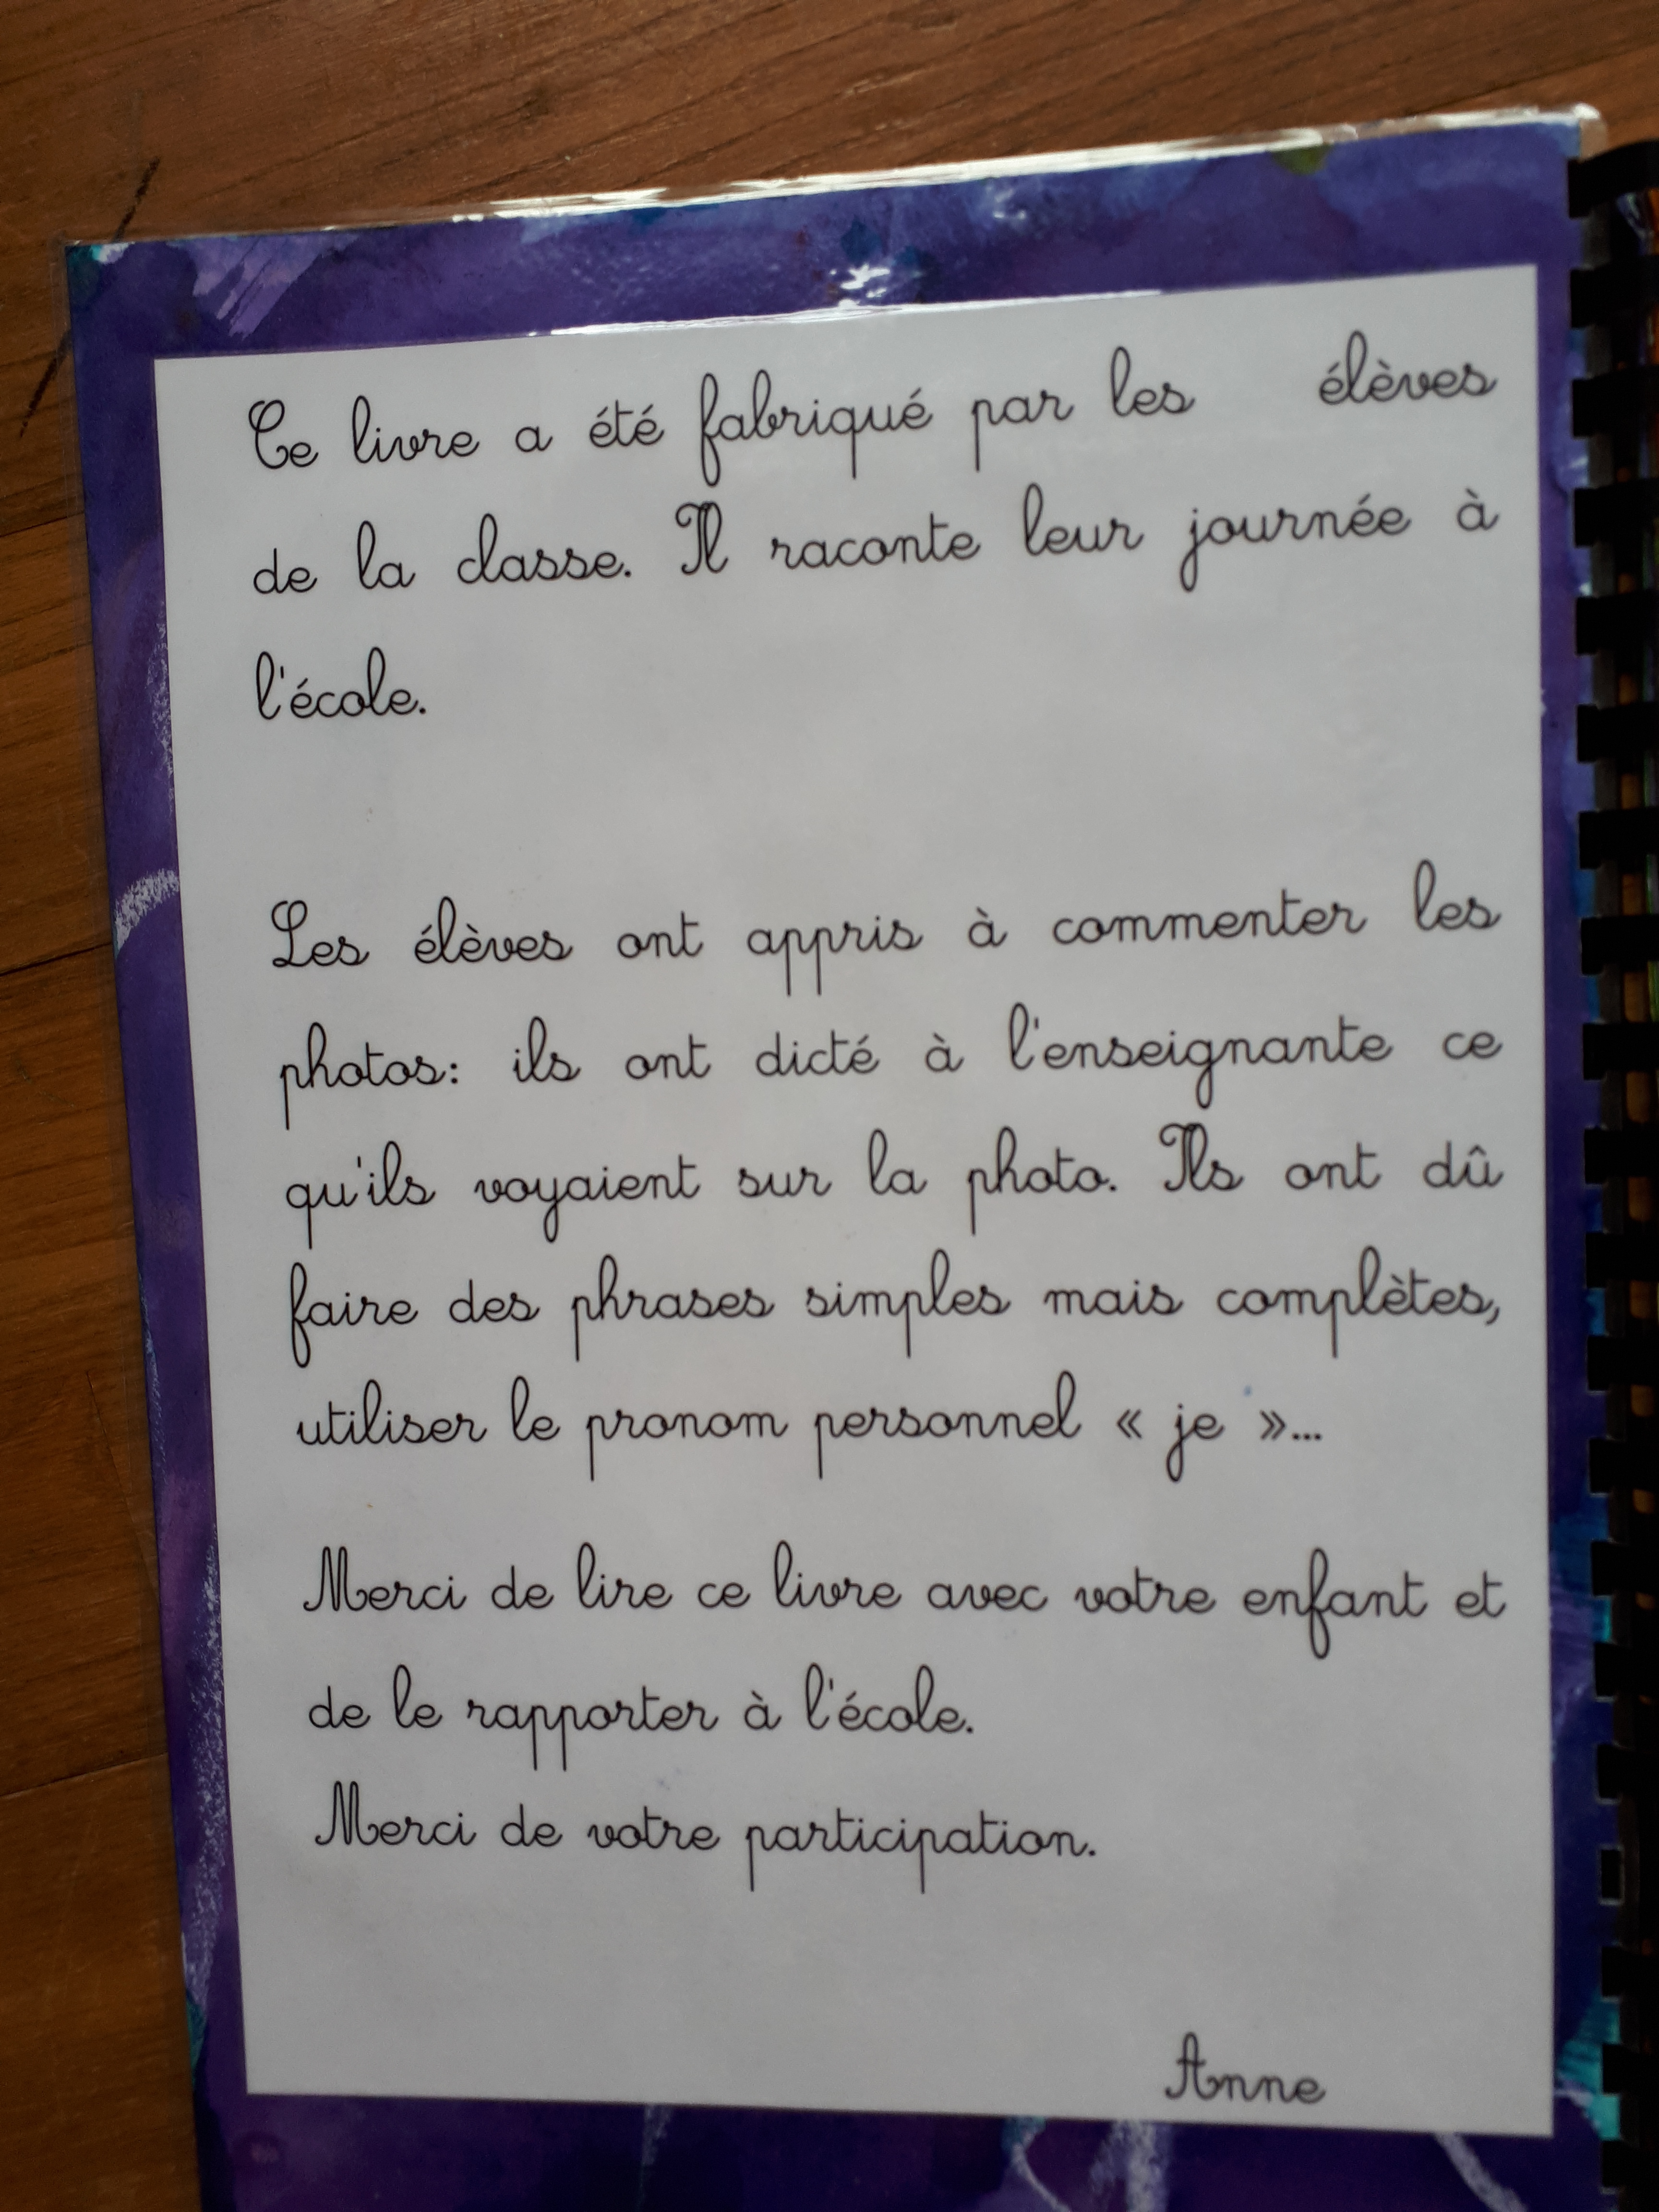 Ce livre a été fabriqué par les élèves
de la classe. Il raconte leur journée à
l'école.
Les élèves ont appris à commenter les
photos: ils ont dicté à l'enseignante ce
qu'ils voyaient sur la photo. Ils ont dû
faire des phrases simples mais complètes,
utiliser le pronom personnel « je »...
Merci de lire ce livre avec votre enfant et
de le rapporter à l'école.
Merci de votre participation.
Anne